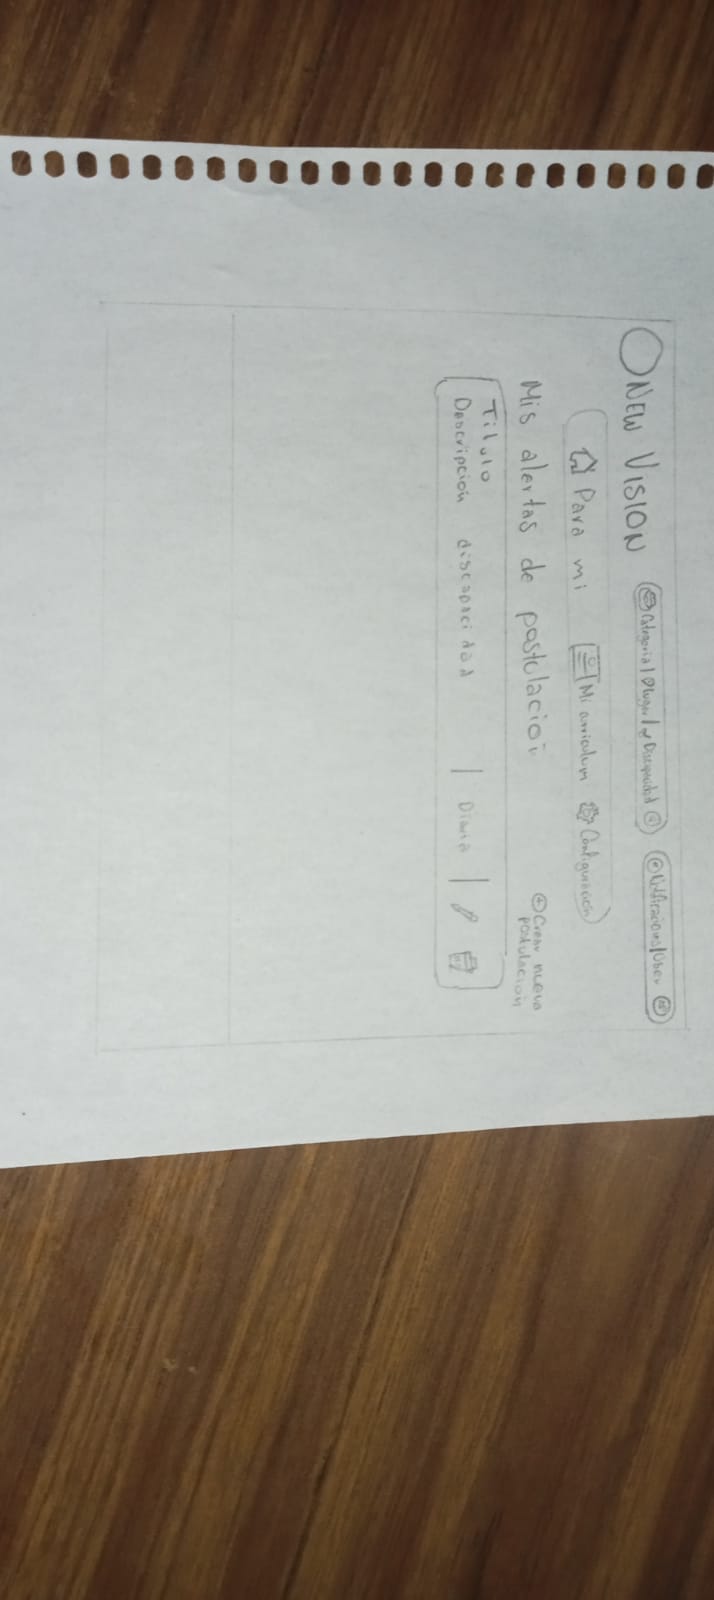 NEW VISION
Categoria | Lugar | Discapacidad
Notificaciones | User
Para mi
Mi curriculum
Configuración
Mis alertas de postulacioi
Crear nueva
postulación
Titulo
Descripcion discapacidad | Diaria |